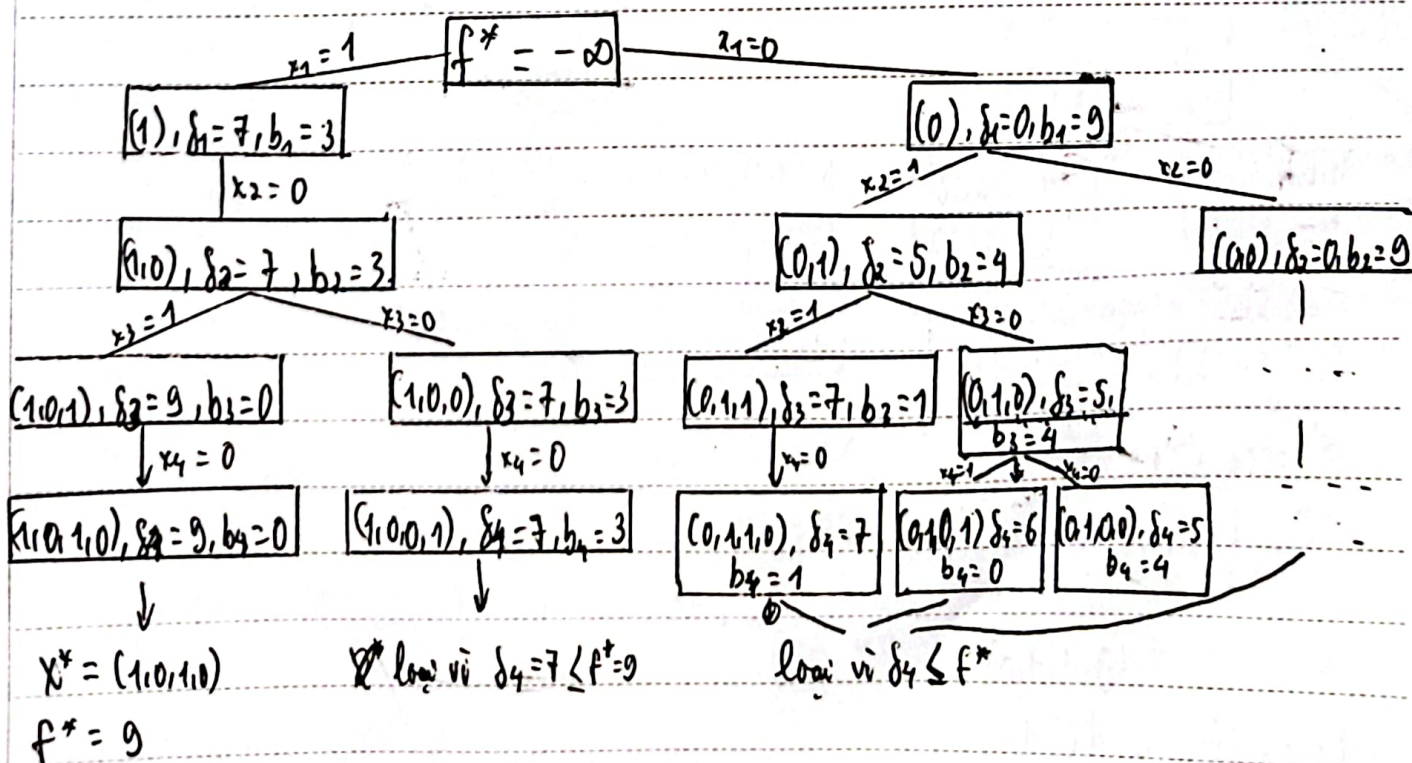 f* = -∞
x1=1
x1=0
(1), δ1=7, b1=3
(0), δ1=0, b1=9
x2=0
x2=1
x2=0
(1,0), δ2=7, b2=3
(0,1), δ2=5, b2=4
(0,0), δ2=0, b2=9
x3=1
x3=0
x2=1
x3=0
(1,0,1), δ3=9, b3=0
(1,0,0), δ3=7, b3=3
(0,1,1), δ3=7, b3=1
(0,1,0), δ3=5,
b3=4
....
x4=0
x4=0
x4=0
x4=1
x4=0
(1,0,1,0), δ4=9, b4=0
(1,0,0,1), δ4=7, b4=3
(0,1,1,0), δ4=7
b4=1
(0,1,0,1) δ4=6
b4=0
(0,1,0,0), δ4=5
b4=4
x* = (1,0,1,0)
loại vì δ4=7 ≤ f*=9
loại vì δ4 ≤ f*
f* = 9